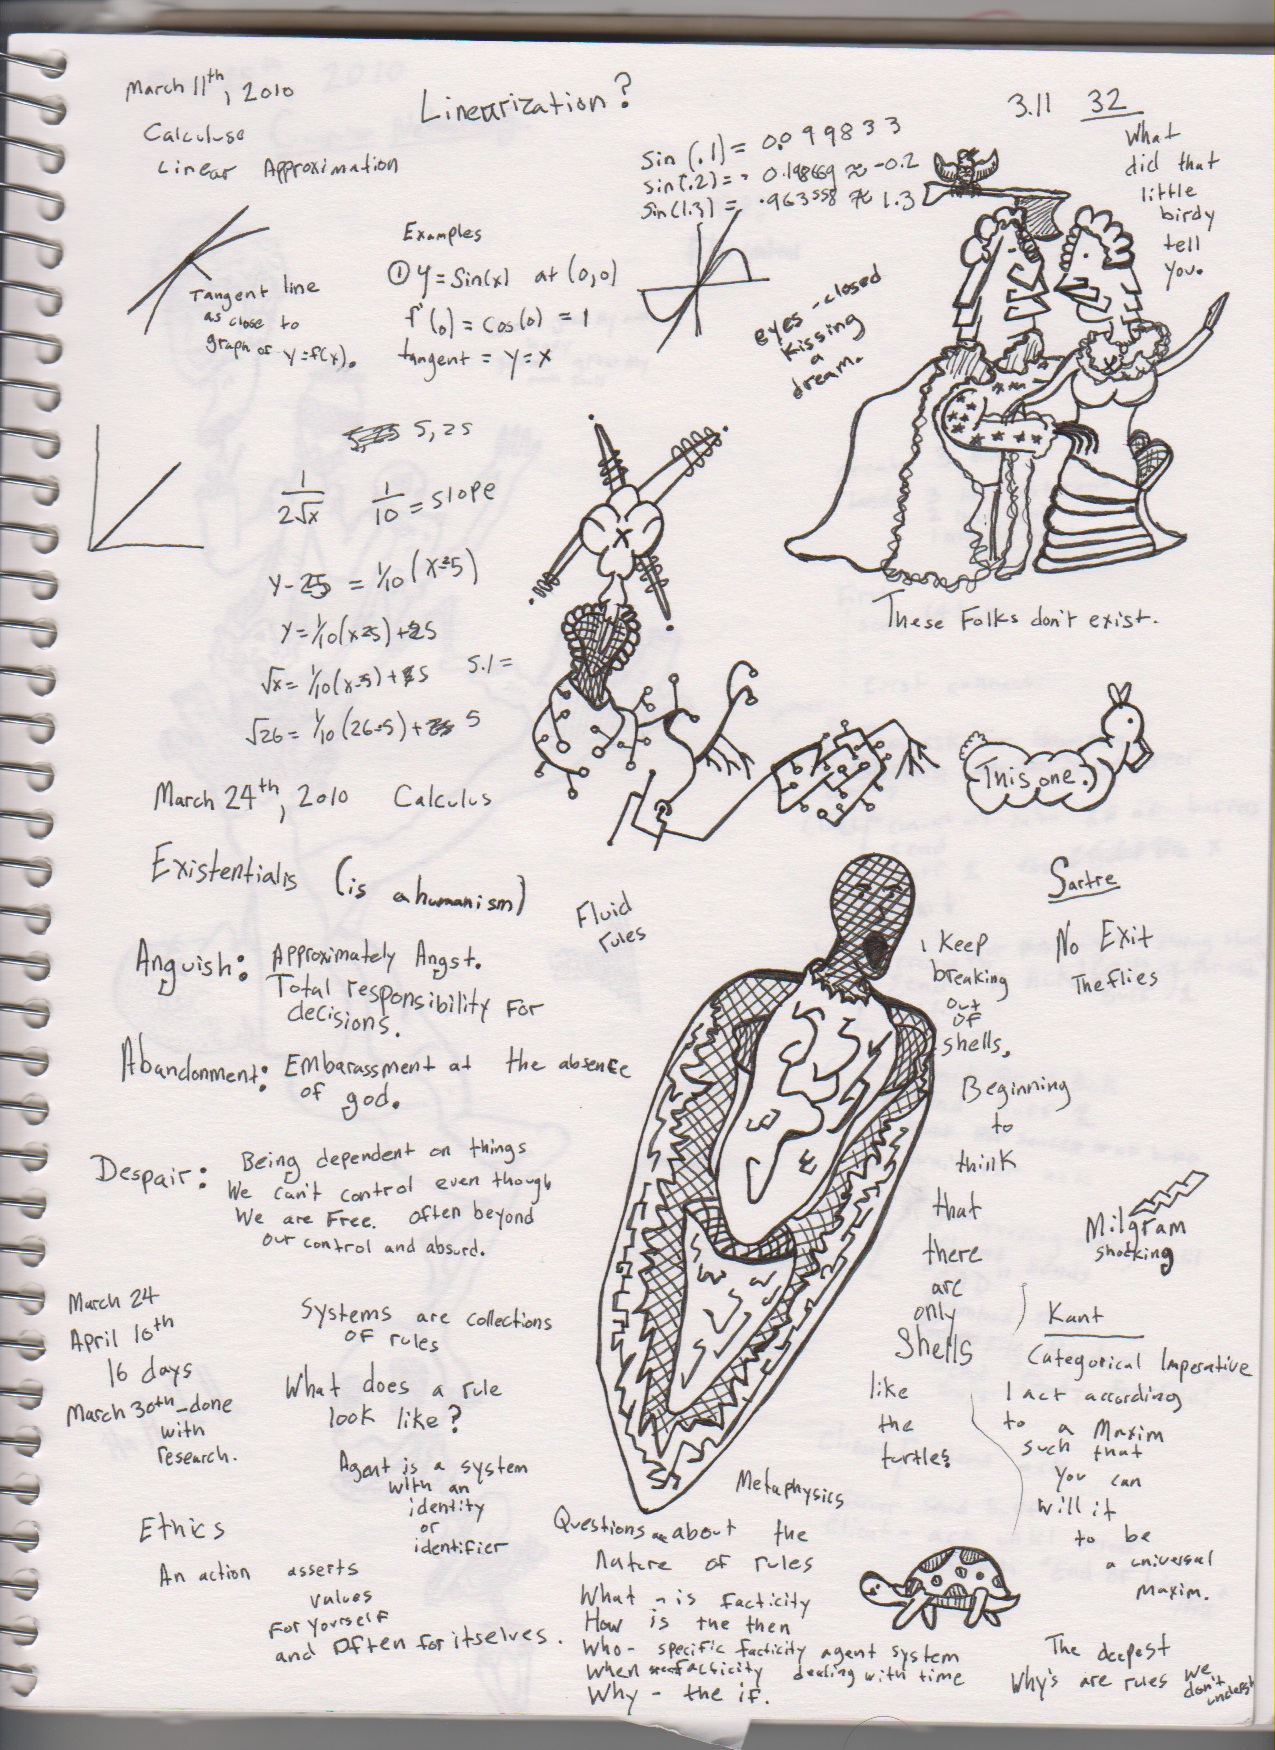 March 11th, 2010
Linearization?
3.11 32
Calculuse
Linear Approximation
sin(.1) = 0.099833
sin(.2) = - 0.198669 ≈ -0.2
sin(1.3) = .963558 ≈ 1.3
What
did that
little
birdy
tell
you.
Tangent line
as close to
graph of y=f(x).
Examples
① y = Sin(x) at (0,0)
f'(0) = cos(0) = 1
tangent = y = x
eyes-closed
kissing
a
dream.
5, 25
1/2√x 1/10 = slope
y - 25 = 1/10 (x-25)
y = 1/10 (x-25) + 25
√x = 1/10 (x-25) + 5
5.1 =
√26 = 1/10 (26-25) + 5
These Folks don't exist.
This one.
March 24th, 2010 Calculus
Existentialis (is a humanism)
Fluid
rules
Anguish: Approximately Angst.
Total responsibility for
decisions.
Abandonment: Embarassment at the absence
of god.
Despair: Being dependent on things
we can't control even though
we are free. often beyond
our control and absurd.
Sartre
No Exit
The flies
I keep
breaking
out
of
shells.
Beginning
to
think
that
there
are
only
Shells
like
the
turtles
Milgram
shocking
March 24
April 10th
16 days
March 30th - done
with
research.
Systems are collections
of rules
What does a rule
look like?
Agent is a system
with an
identity
or
identifier
Kant
Categorical Imperative
I act according
to a Maxim
such that
you can
will it
to be
a universal
maxim.
Ethics
An action asserts
values
for yourself
and often for itselves.
Metaphysics
Questions about the
nature of rules
What - is facticity
How is the then
Who - specific facticity agent system
When facticity dealing with time
Why - the if.
The deepest
Why's are rules we
don't
underst